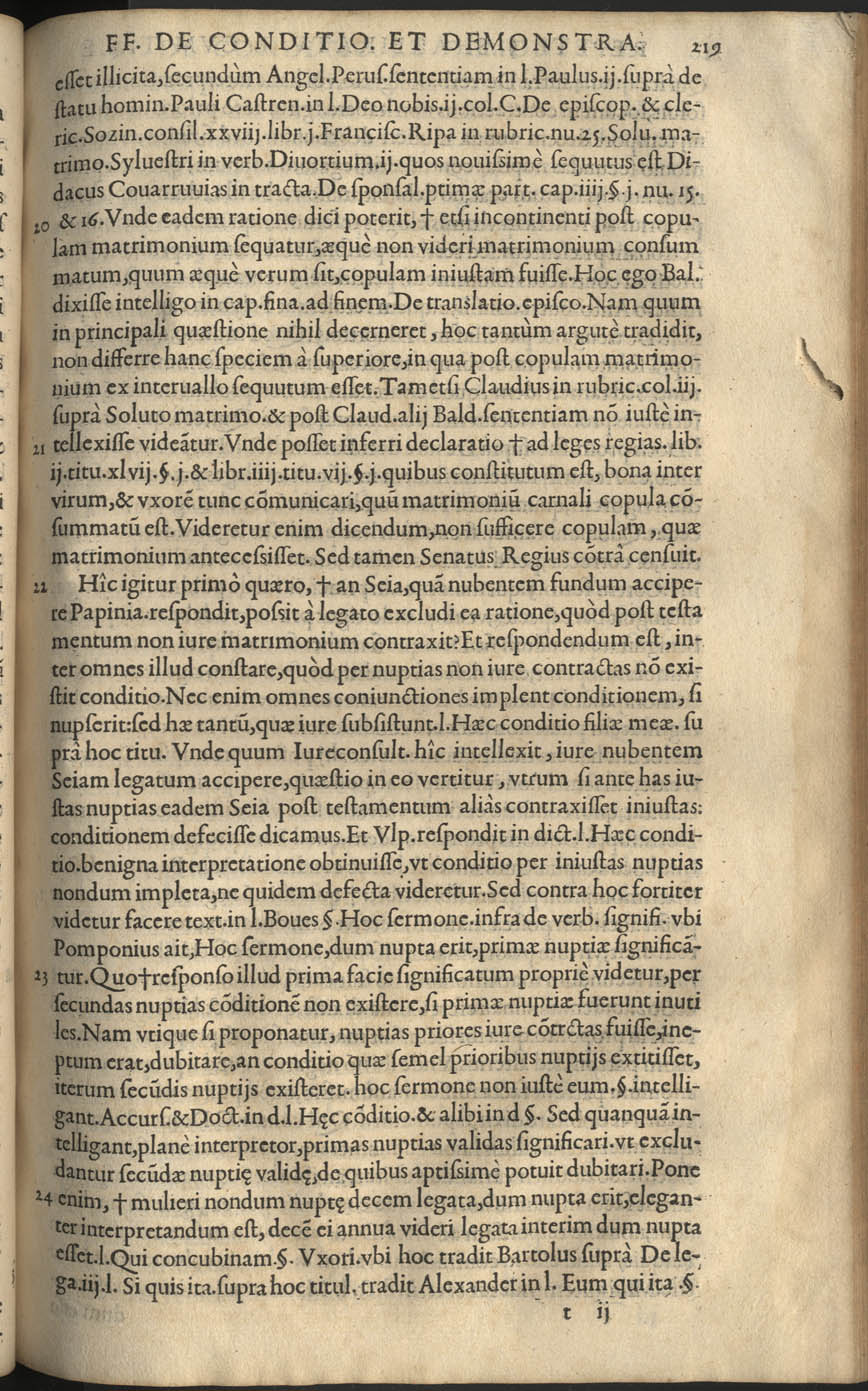 FF. DE CONDITIO. ET DEMONSTRA. 219
eſſet illicita,ſecundùm Angel.Peruſ.ſententiam in l.Paulus.ij.ſuprà de
ſtatu homin.Pauli Caſtren.in l.Deo nobis.ij.col.C.De epiſcop. & cle-
ric.Sozin.conſil.xxvij.libr.j.Franciſc.Ripa in rubric.nu.25.Solu. ma-
trimo.Sylueſtri in verb.Diuortium.ij.quos nouiſsimè ſequutus eſt Di-
dacus Couarruuias in tracta.De ſponſal.ptimæ part. cap.iiij.§.j. nu. 15.
20 & 16.Vnde eadem ratione dici poterit, † etſi incontinenti poſt copu-
lam matrimonium ſequatur,æquè non videri matrimonium conſum
matum,quum æquè verum ſit,copulam iniuſtam fuiſſe.Hoc ego Bal.
dixiſſe intelligo in cap.fina.ad finem.De translatio.epiſco.Nam quum
in principali quæſtione nihil decerneret, hoc tantùm argutè tradidit,
non differre hanc ſpeciem à ſuperiore,in qua poſt copulam matrimo-
nium ex interuallo ſequutum eſſet.Tametſi Claudius in rubric.col.iij.
ſuprà Soluto matrimo.& poſt Claud.alij Bald.ſententiam nō iuſtè in-
21 tellexiſſe videātur.Vnde poſſet inferri declaratio † ad leges regias. lib.
ij.titu.xlvij.§.j.& libr.iiij.titu.vij.§.j.quibus conſtitutum eſt, bona inter
virum,& vxorē tunc cōmunicari,quū matrimoniū carnali copula cō-
ſummatū eſt.Videretur enim dicendum,non ſufficere copulam, quæ
matrimonium anteceſsiſſet. Sed tamen Senatus Regius cōtrà cenſuit.
22 Hîc igitur primò quæro, † an Seia,quā nubentem fundum accipe-
re Papinia.reſpondit,poſsit à legato excludi ea ratione,quòd poſt teſta
mentum non iure matrimonium contraxit?Et reſpondendum eſt, in-
ter omnes illud conſtare,quòd per nuptias non iure contractas nō exi-
ſtit conditio.Nec enim omnes coniunctiones implent conditionem, ſi
nupſerit:ſed hæ tantū,quæ iure ſubſiſtunt.l.Hæc conditio filiæ meæ. ſu
prà hoc titu. Vnde quum Iureconſult. hîc intellexit, iure nubentem
Seiam legatum accipere,quæſtio in eo vertitur, vtrum ſi ante has iu-
ſtas nuptias eadem Seia poſt teſtamentum aliàs contraxiſſet iniuſtas:
conditionem defeciſſe dicamus.Et Vlp.reſpondit in dict.l.Hæc condi-
tio.benigna interpretatione obtinuiſſe,vt conditio per iniuſtas nuptias
nondum impleta,ne quidem defecta videretur.Sed contra hoc fortiter
videtur facere text.in l.Boues §.Hoc ſermone.infra de verb. ſignifi. vbi
Pomponius ait,Hoc ſermone,dum nupta erit,primæ nuptiæ ſignificā-
23 tur.Quo†reſponſo illud prima facie ſignificatum propriè videtur,per
ſecundas nuptias cōditionē non exiſtere,ſi primæ nuptiæ fuerunt inuti
les.Nam vtique ſi proponatur, nuptias priores iure cōtrctas fuiſſe,ine-
ptum erat,dubitare,an conditio quæ ſemel prioribus nuptijs extitiſſet,
iterum ſecūdis nuptijs exiſteret. hoc ſermone non iuſtè eum.§.intelli-
gant.Accurſ.&Doct.in d.l.Hęc cōditio.& alibi in d §. Sed quanquā in-
telligant,planè interpretor,primas nuptias validas ſignificari.vt exclu-
dantur ſecūdæ nuptię validę,de quibus aptiſsimè potuit dubitari.Pone
24 enim, † mulieri nondum nuptę decem legata,dum nupta erit,elegan-
ter interpretandum eſt, decē ei annua videri legata interim dum nupta
eſſet.l.Qui concubinam.§. Vxori.vbi hoc tradit Bartolus ſuprà De le-
ga.iij.l. Si quis ita.ſupra hoc titul. tradit Alexander in l. Eum qui ita .§.
t ij